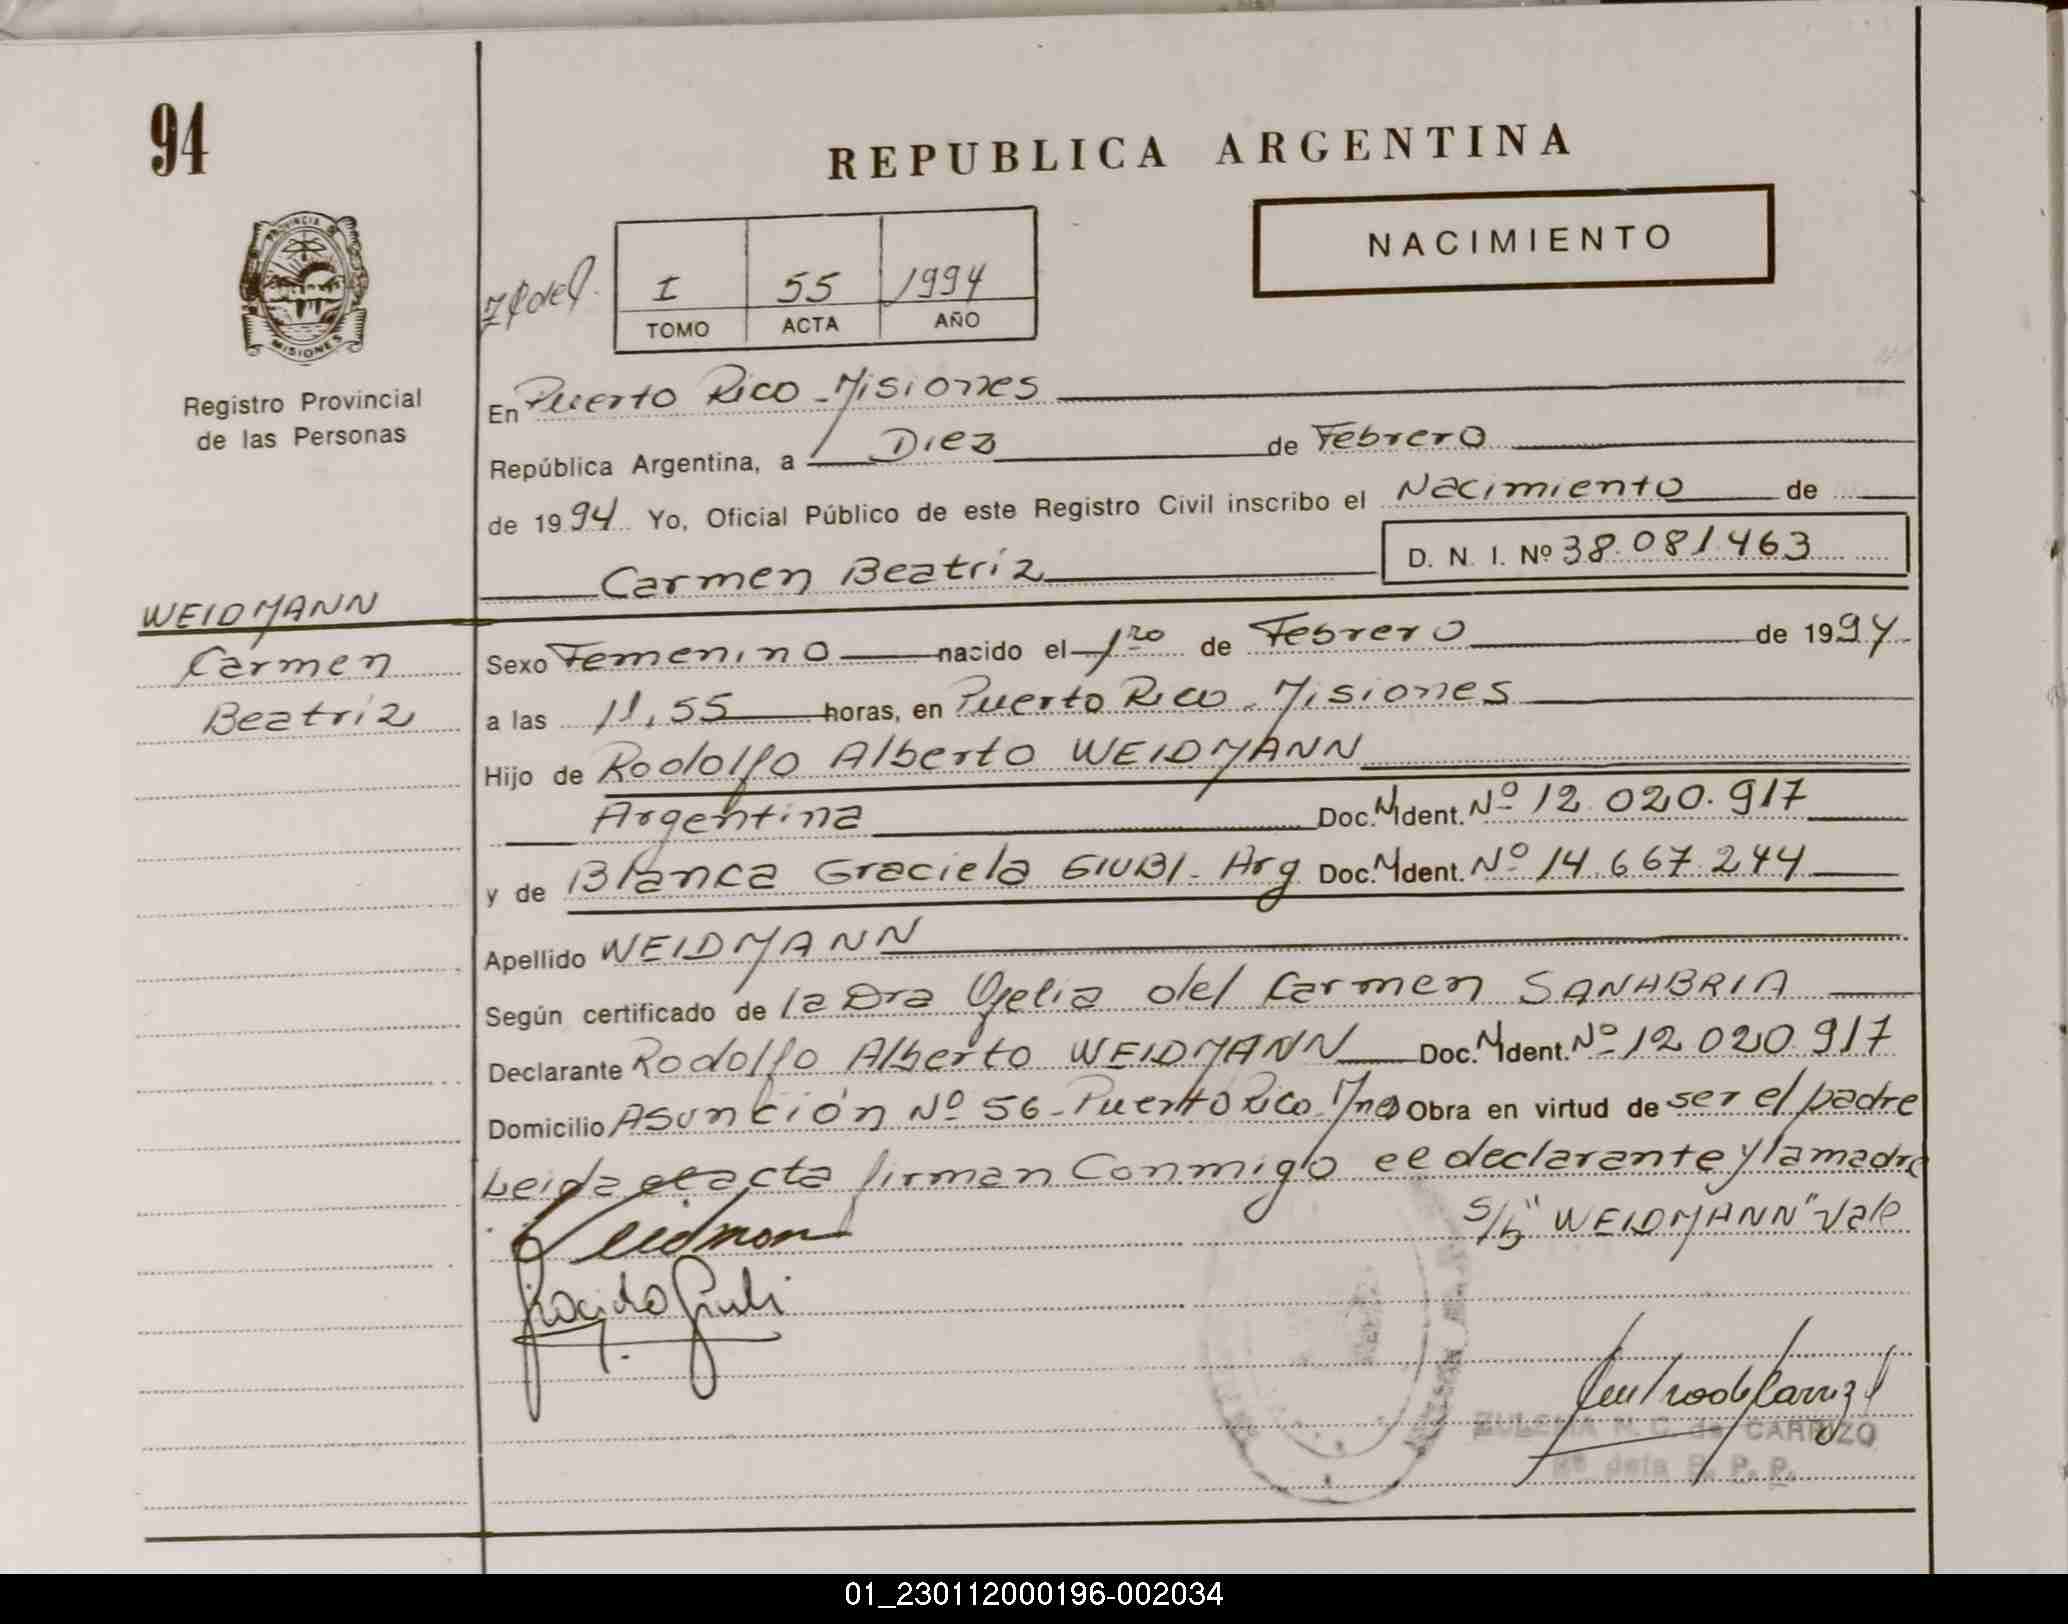 94
REPUBLICA ARGENTINA
PROVINCIA DE
MISIONES
Registro Provincial
de las Personas
NACIMIENTO
I 55 1994
TOMO ACTA AÑO
En Puerto Rico - Misiones
República Argentina, a Diez de Febrero
de 1994 Yo, Oficial Público de este Registro Civil inscribo el Nacimiento de
Carmen Beatriz D. N. I. Nº 38.081.463
WEIDMANN
Carmen
Beatriz
Sexo Femenino nacido el 1ro de Febrero de 1994
a las 11,55 horas, en Puerto Rico - Misiones
Hijo de Rodolfo Alberto WEIDMANN
Argentina Doc. N Ident. Nº 12.020.917
y de Blanca Graciela GIUBI - Arg Doc. N Ident. Nº 14.667.244
Apellido WEIDMANN
Según certificado de la Dra del Carmen SANABRIA
Declarante Rodolfo Alberto WEIDMANN Doc. N Ident. Nº 12.020.917
Domicilio Asunción Nº 56 - Puerto Rico - Mnes Obra en virtud de ser el padre
Leida el acta firman Conmigo el declarante y la madre
S/b "WEIDMANN" Vale
ZULEMA N. C. de CARRIZO
R. P. P.
01_230112000196-002034